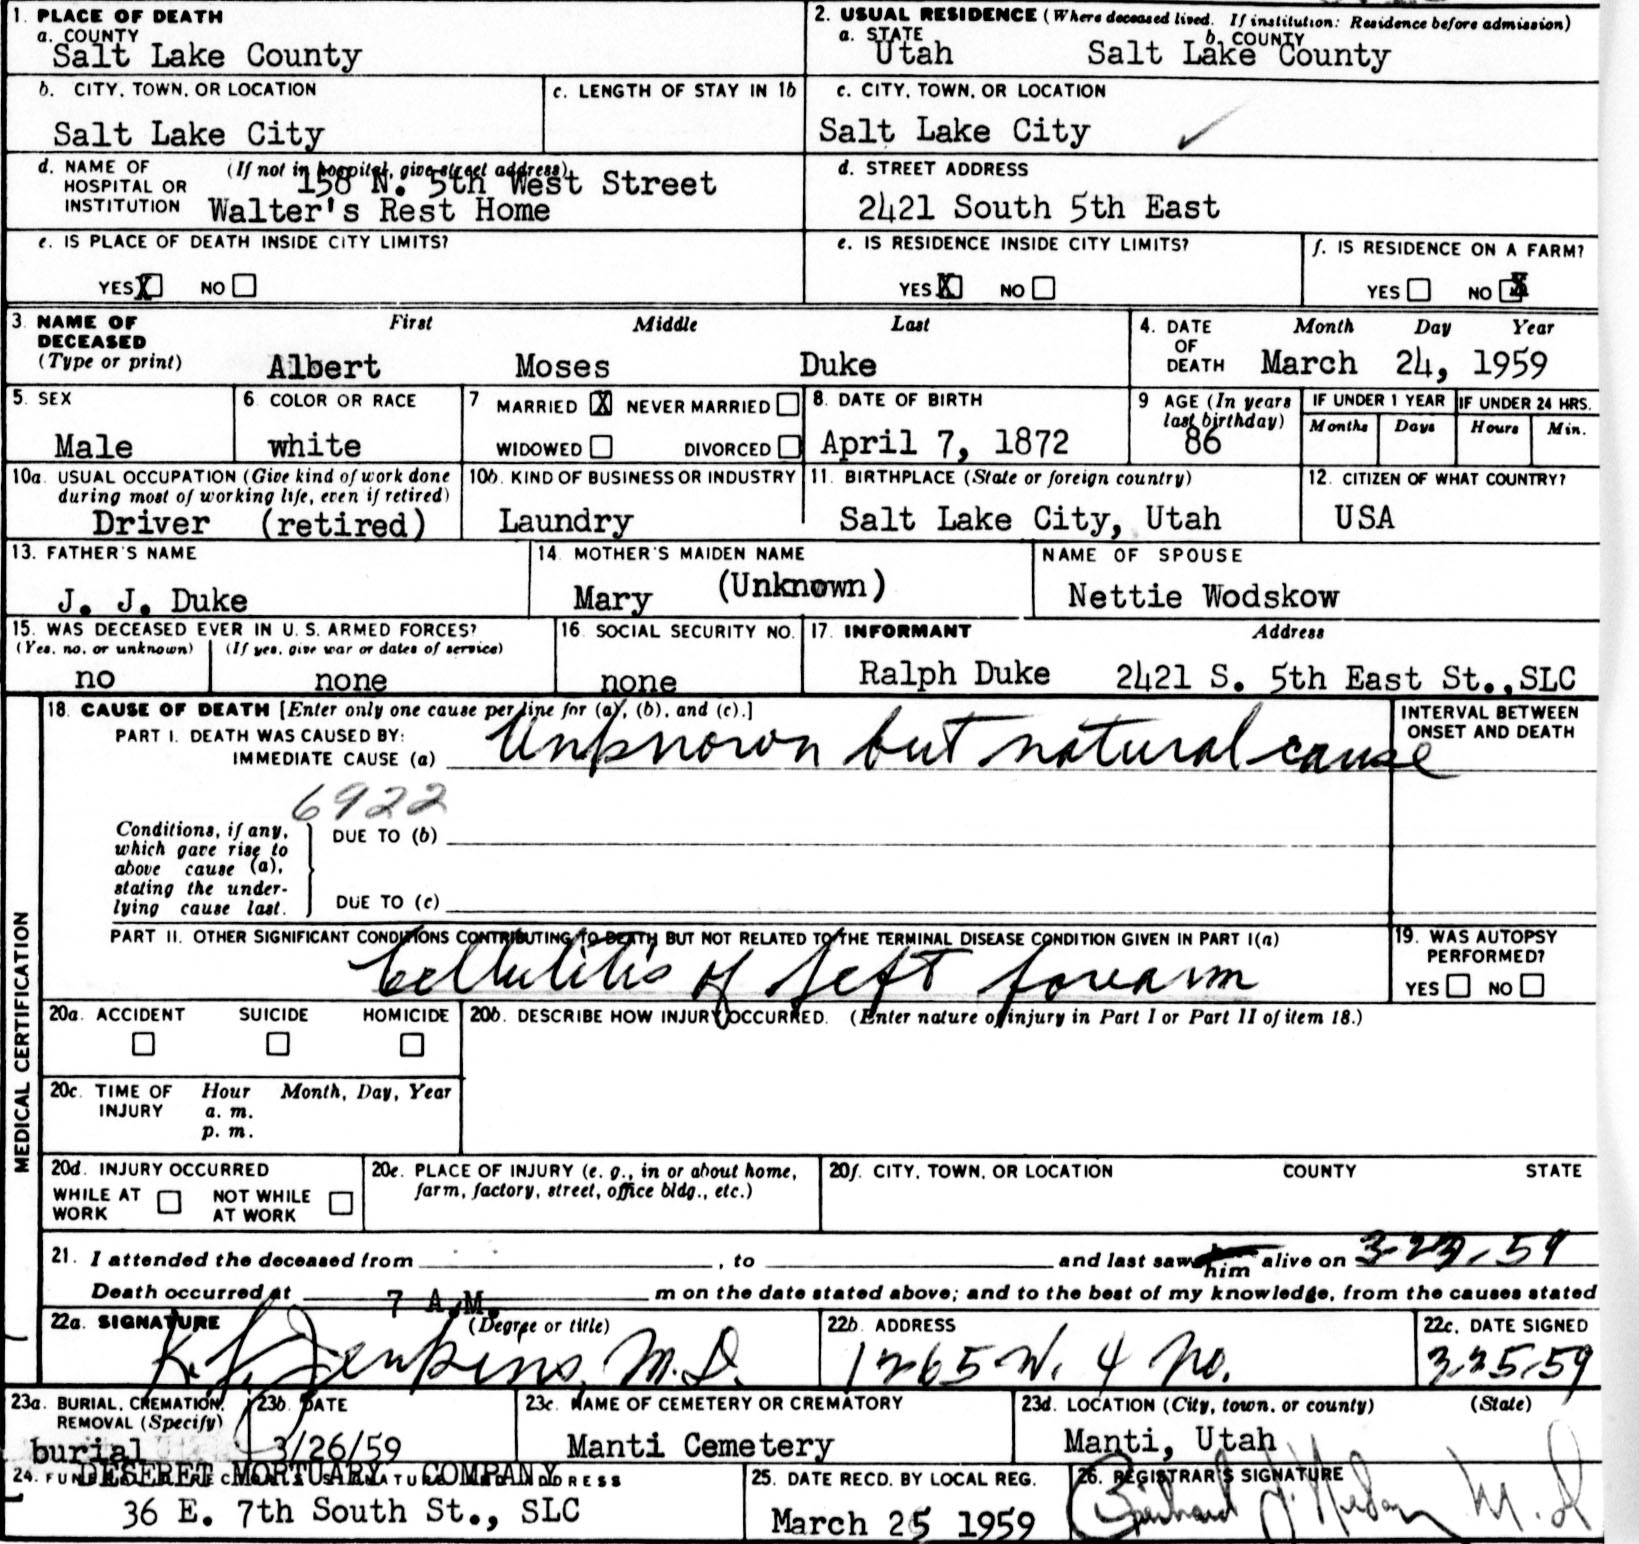 1. PLACE OF DEATH
a. COUNTY
Salt Lake County
2. USUAL RESIDENCE (Where deceased lived. If institution: Residence before admission)
a. STATE
Utah
b. COUNTY
Salt Lake County
b. CITY, TOWN, OR LOCATION
Salt Lake City
c. LENGTH OF STAY IN 1b
c. CITY, TOWN, OR LOCATION
Salt Lake City
d. NAME OF HOSPITAL OR INSTITUTION
(If not in hospital, give street address)
158 N. 5th West Street
Walter's Rest Home
d. STREET ADDRESS
2421 South 5th East
e. IS PLACE OF DEATH INSIDE CITY LIMITS?
YES X NO
e. IS RESIDENCE INSIDE CITY LIMITS?
YES X NO
f. IS RESIDENCE ON A FARM?
YES NO X
3. NAME OF DECEASED
(Type or print)
First Middle Last
Albert Moses Duke
4. DATE OF DEATH
Month Day Year
March 24, 1959
5. SEX
Male
6. COLOR OR RACE
white
7 MARRIED X NEVER MARRIED
WIDOWED DIVORCED
8. DATE OF BIRTH
April 7, 1872
9 AGE (In years last birthday)
86
IF UNDER 1 YEAR
Months Days
IF UNDER 24 HRS.
Hours Min.
10a. USUAL OCCUPATION (Give kind of work done
during most of working life, even if retired)
Driver (retired)
10b. KIND OF BUSINESS OR INDUSTRY
Laundry
11. BIRTHPLACE (State or foreign country)
Salt Lake City, Utah
12. CITIZEN OF WHAT COUNTRY?
USA
13. FATHER'S NAME
J. J. Duke
14. MOTHER'S MAIDEN NAME
Mary (Unknown)
NAME OF SPOUSE
Nettie Wodskow
15. WAS DECEASED EVER IN U. S. ARMED FORCES?
(Yes, no, or unknown) (If yes, give war or dates of service)
no none
16. SOCIAL SECURITY NO.
none
17. INFORMANT Address
Ralph Duke 2421 S. 5th East St.,SLC
MEDICAL CERTIFICATION
18. CAUSE OF DEATH [Enter only one cause per line for (a), (b), and (c).]
PART I. DEATH WAS CAUSED BY:
IMMEDIATE CAUSE (a) Unknown but natural cause
INTERVAL BETWEEN ONSET AND DEATH
6922
Conditions, if any,
which gave rise to
above cause (a),
stating the under-
lying cause last.
DUE TO (b)
DUE TO (c)
PART II. OTHER SIGNIFICANT CONDITIONS CONTRIBUTING TO DEATH BUT NOT RELATED TO THE TERMINAL DISEASE CONDITION GIVEN IN PART I(a)
Cellulitis of left forearm
19. WAS AUTOPSY PERFORMED?
YES NO
20a. ACCIDENT SUICIDE HOMICIDE
20b. DESCRIBE HOW INJURY OCCURRED. (Enter nature of injury in Part I or Part II of item 18.)
20c. TIME OF INJURY
Hour Month, Day, Year
a. m.
p. m.
20d. INJURY OCCURRED
WHILE AT WORK NOT WHILE AT WORK
20e. PLACE OF INJURY (e. g., in or about home,
farm, factory, street, office bldg., etc.)
20f. CITY, TOWN, OR LOCATION COUNTY STATE
21. I attended the deceased from , to and last saw him alive on
Death occurred at 7 A.M. m on the date stated above; and to the best of my knowledge, from the causes stated
22a. SIGNATURE (Degree or title)
Jenkins, M.D.
22b. ADDRESS
1265 W. 4 No.
22c. DATE SIGNED
3-25-59
23a. BURIAL, CREMATION, REMOVAL (Specify)
burial
23b. DATE
3/26/59
23c. NAME OF CEMETERY OR CREMATORY
Manti Cemetery
23d. LOCATION (City, town, or county) (State)
Manti, Utah
24.
DESERET MORTUARY COMPANY
36 E. 7th South St., SLC
25. DATE RECD. BY LOCAL REG.
March 25 1959
26. REGISTRAR'S SIGNATURE
M. D